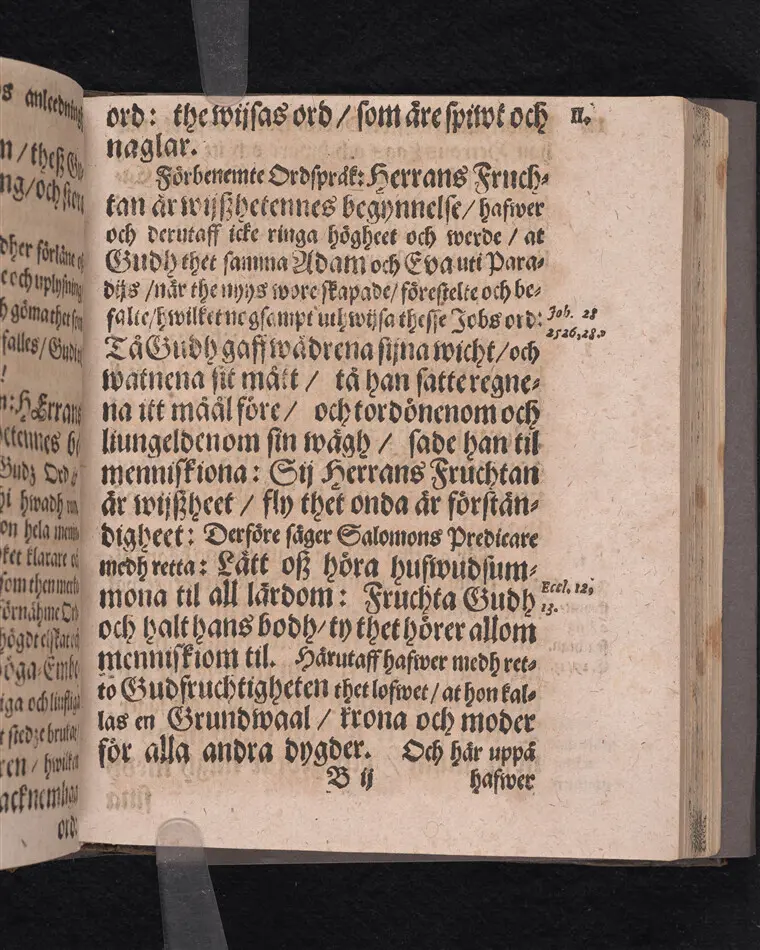 ord: the wijsas ord / som äre spiwt och
naglar.
Förbenemte Ordspråk: Herrans Fruch-
tan är wijßhetennes begynnelse / hafwer
och derutaff icke ringa högheet och werde / at
Gudh thet samma Adam och Eva uti Para-
dijs / när the nyys wore skapade / förestelte och be-
falte / hwilket nogsampt uthwijsa thesse Jobs ord:
Tå Gudh gaff wädrena sijna wicht / och
watnena sit mått / tå han satte regne-
na itt måål före / och tordönenom och
liungeldenom sin wägh / sade han til
menniskiona: Sij Herrans Fruchtan
är wijßheet / fly thet onda är förstån-
digheet: Derföre säger Salomons Predicare
medh retta: Lått oß höra hufwudsum-
mona til all lärdom: Fruchta Gudh
och halt hans bodh / ty thet hörer allom
menniskiom til. Härutaff hafwer medh ret-
to Gudfruchtigheten thet lofwet / at hon kal-
las en Grundwaal / krona och moder
för alla andra dygder. Och här uppå
B ij hafwer
II.
Job. 28
25 26, 28.
Eccl. 12,
13.
anledning
n / theß
ng / och
dher förläne
och uplysning
gömathet
falles / Gudh
!
n: HErrans
Gudz Ord
hwadh
on hela
ket klarare
som then
förnähme
högdt
öga
iga och
ord: